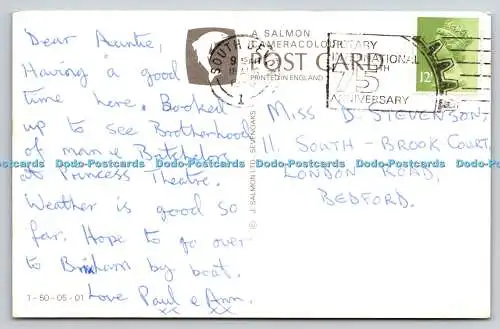 Dear Auntie,
Having a good
time here. Booked
up to see Brotherhood
of man & Batchelors
at Princess Theatre.
Weather is good so
far. Hope to go over
to Brixham by boat.
Love Paul & Ann.
xx xx
1-50-05-01
A SALMON
CAMERACOLOUR
POST CARD
PRINTED IN ENGLAND
© J. SALMON SEVENOAKS
SOUTH
1
ROTARY
INTERNATIONAL
75TH
ANNIVERSARY
12P
MISS B STEVENSON,
11. SOUTH-BROOK COURT
LONDON ROAD,
BEDFORD.
Dodo-Postcards Dodo-Postcards Dodo-Postcards Dodo-Postcards Dodo-Postcards